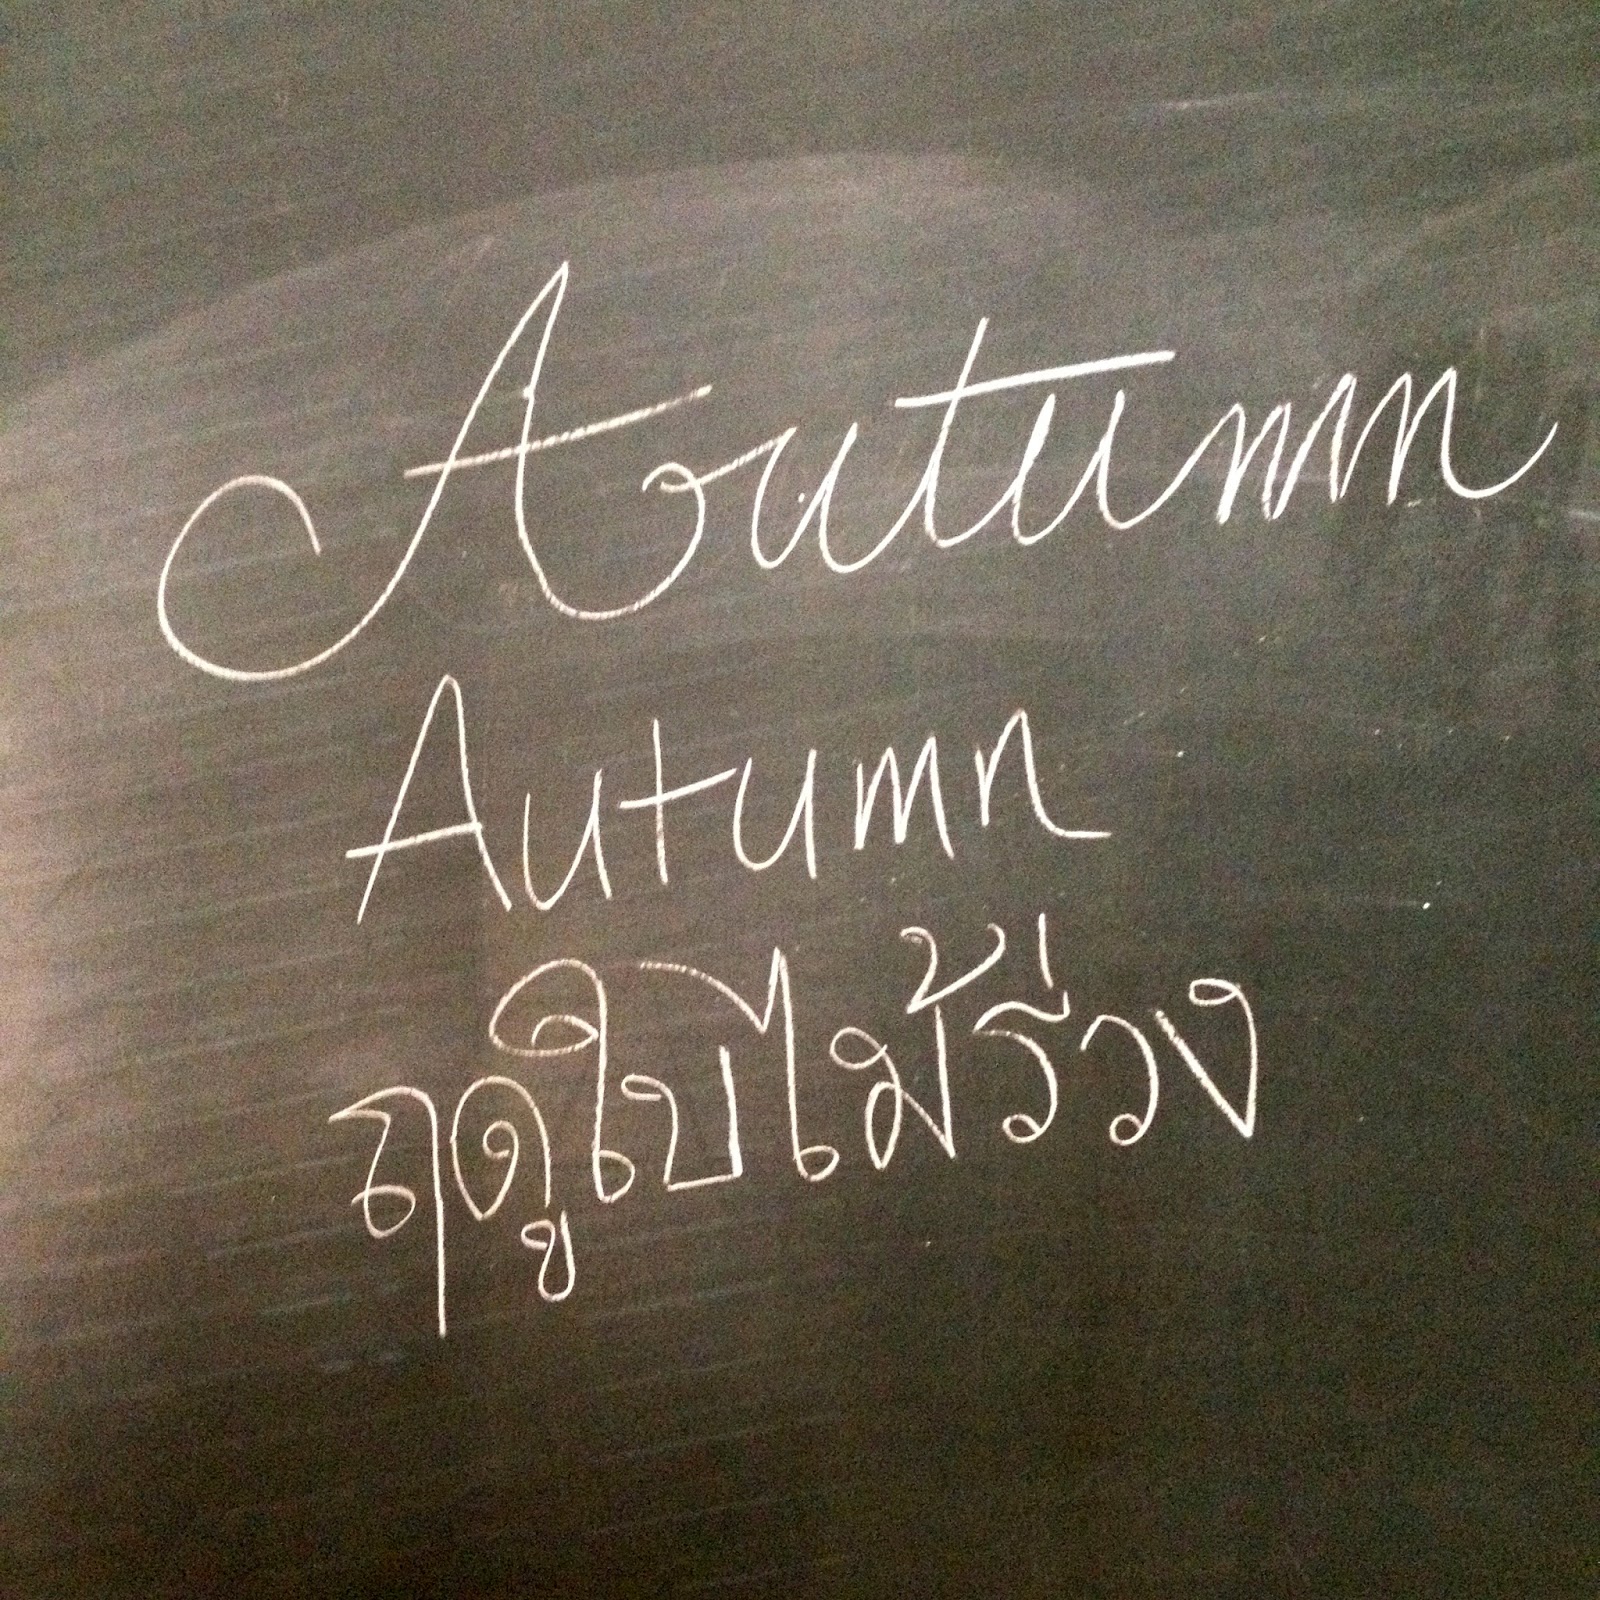 Autumn
Autumn
ฤดูใบไม้ร่วง